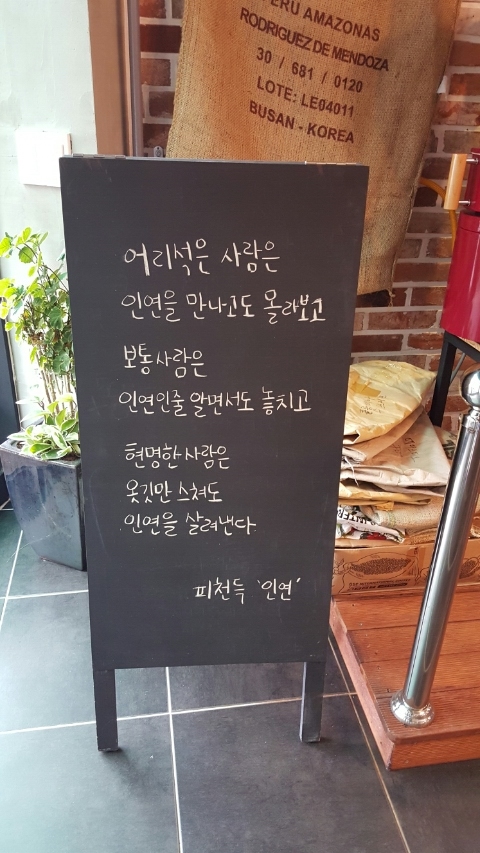 PERU AMAZONAS
RODRIGUEZ DE MENDOZA
30 / 681 / 0120
LOTE: LE04011
BUSAN - KOREA
어리석은 사람은
인연을 만나고도 몰라보고
보통사람은
인연인줄 알면서도 놓치고
현명한 사람은
옷깃만 스쳐도
인연을 살려낸다
피천득 '인연'